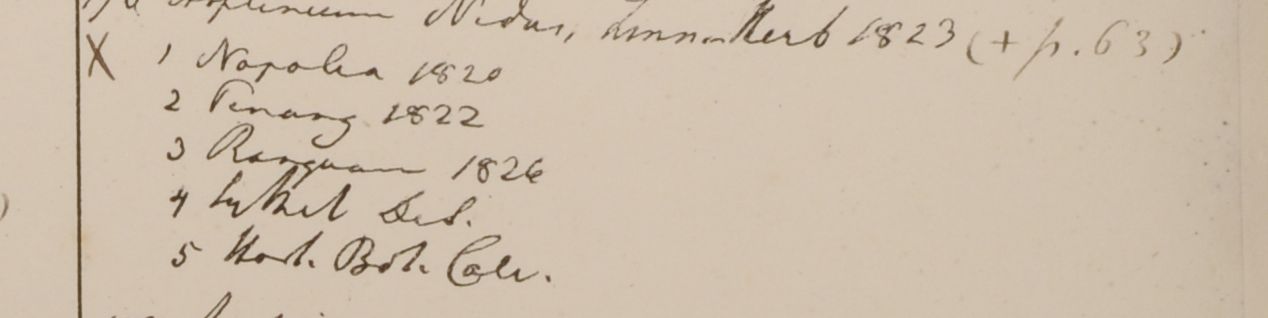 Asplenium Nidus, Linn. Herb 1823 (+ p. 63)
X 1 Napalia 1820
2 Penang 1822
3 Rangoon 1826
4 Sylhet Ded.
5 Hort. Bot. Calc.